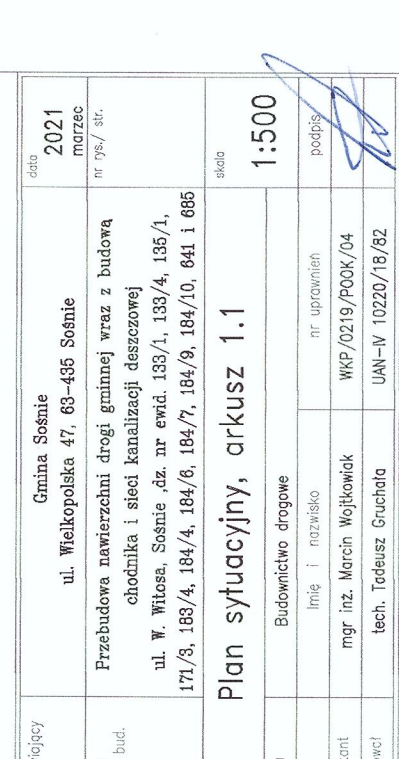 iający
Gmina Sośnie
ul. Wielkopolska 47, 63-435 Sośnie
data
2021
marzec
bud.
Przebudowa nawierzchni drogi gminnej wraz z budową
chodnika i sieci kanalizacji deszczowej
ul. W. Witosa, Sośnie ,dz. nr ewid. 133/1, 133/4, 135/1,
171/3, 183/4, 184/4, 184/6, 184/7, 184/9, 184/10, 641 i 685
nr rys./ str.
Plan sytuacyjny, arkusz 1.1
skala
1:500
Budownictwo drogowe
Imię i nazwisko
nr uprawnien
podpis
tant
mgr inż. Marcin Wojtkowiak
WKP/0219/POOK/04
wał
tech. Tadeusz Gruchała
UAN-IV 10220/18/82